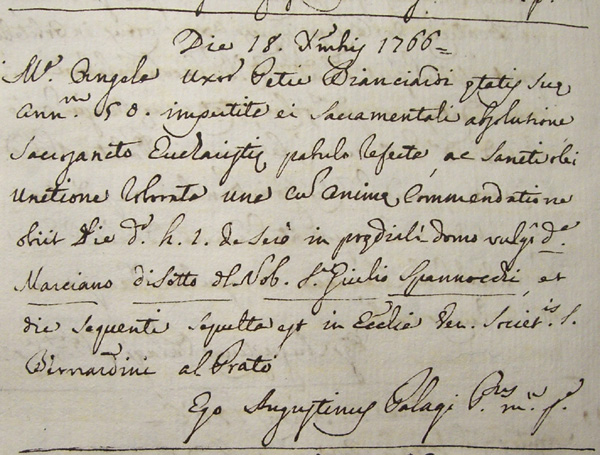 Die 18. Xmbris 1766=
Mr. Angela Uxor Petri Bianciardi ętatis suę
annm. 58. impertita ei Sacramentali absolutione
Sacrosancto Eucharistię pabulo refecta, ac Sancti olei
unctione roborata una cu animę Commendatione
obiit Die da. h. 2. de Sero in prędiali domo vulgo da.
Marciano di Sotto del Nob. Sr. Giulio Spannocchi, et
die sequenti sepulta est in Ecclia Ven. Societis. S.
Bernardini al Prato
Ego Augustinus Palagi Prs. mo. po.